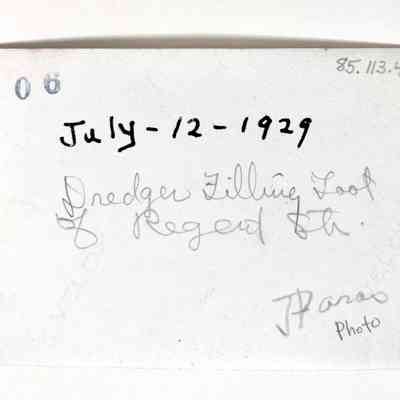 06
85.113.4
July-12-1929
Dredger Filling Foot
of Regent Str.
Photo